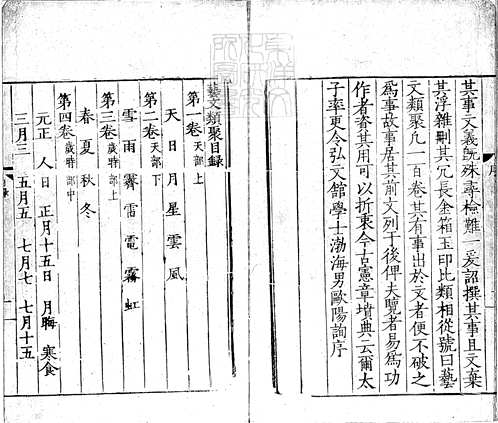 其事文義既殊尋檢難一爰詔撰其事且文棄
其浮雜刪其冗長金箱玉印比類相從號曰藝
文類聚凡一百卷其有事出於文者便不破之
為事故事居其前文列于後俾夫覽者易為功
作者資其用可以折衷今古憲章墳典云爾太
子率更令弘文館學士渤海男歐陽詢序
藝文類聚目錄
第一卷天部上
天 日 月 星 雲 風
第二卷天部下
雪 雨 霽 雷 電 霧 虹
第三卷歲時部上
春 夏 秋 冬
第四卷歲時部中
元正 人日 正月十五日 月晦 寒食
三月三 五月五 七月七 七月十五